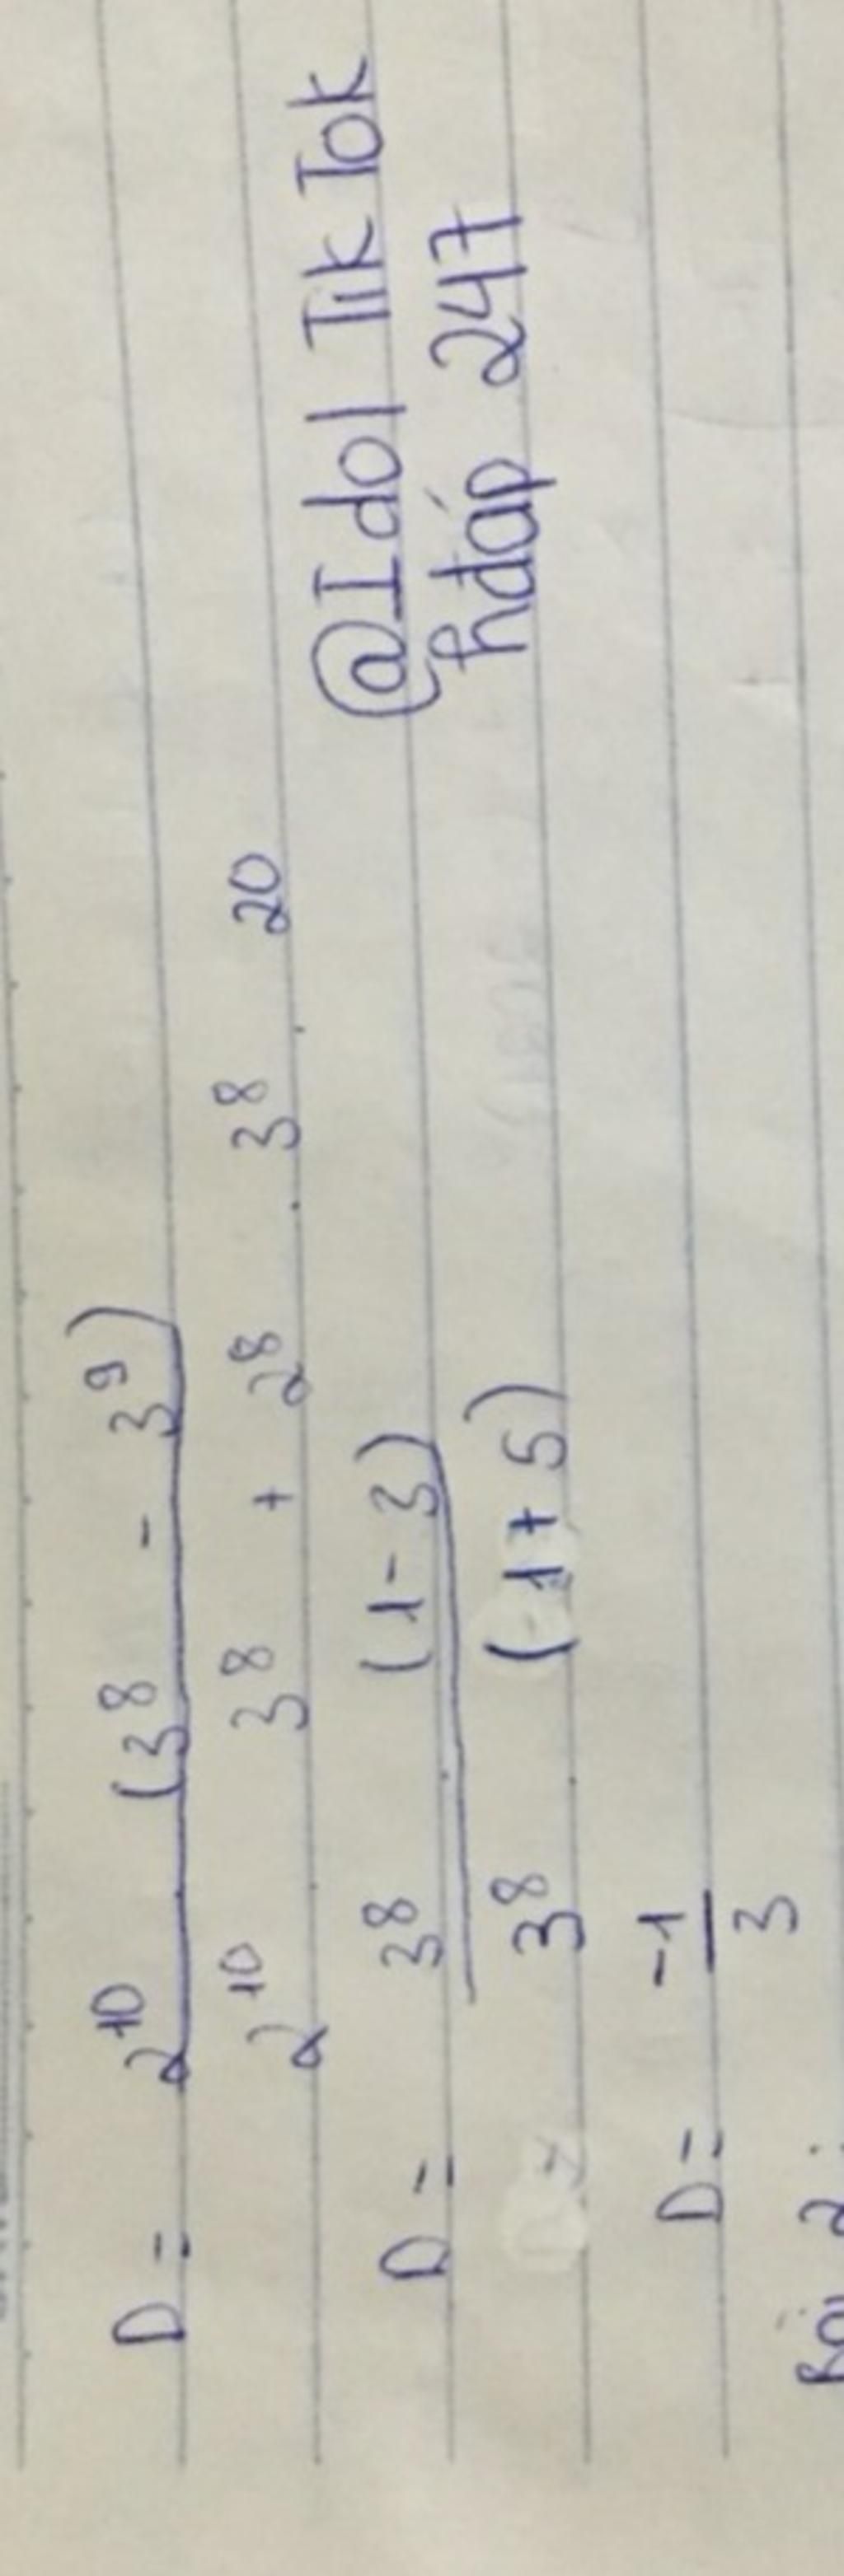 D = 2^10 (3^8 - 3^9)
2^10 . 3^8 + 2^8 . 3^8 . 20
@Idol Tik Tok
D = 3^8 . (1 - 3)
hdáp 247
3^8 . (1 + 5)
D = -1
3
2: